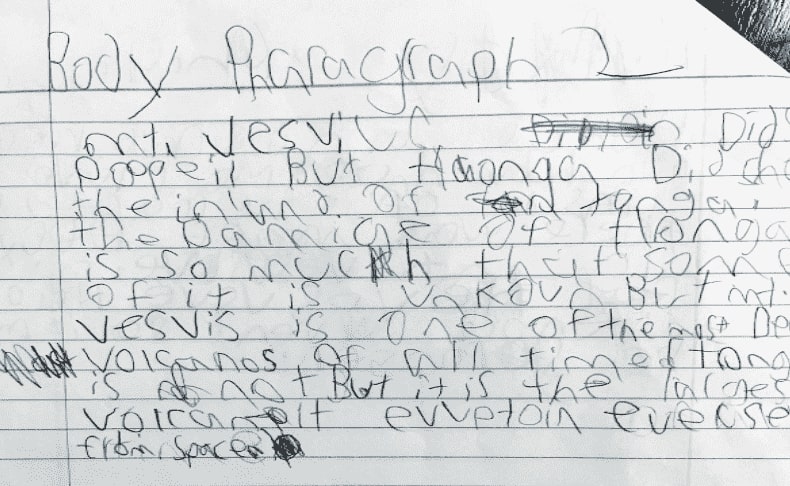 Body Pharagraph 2
mt. Vesvius Did
popeii But Haonga Did sho
the inland of tonga.
the Damige of Honga
is so much that som
of it is unkoun But mt.
vesvis is one of the most De
volcanos of all time tong
is not But it is the larges
volcanoit evvetoin everse
from space